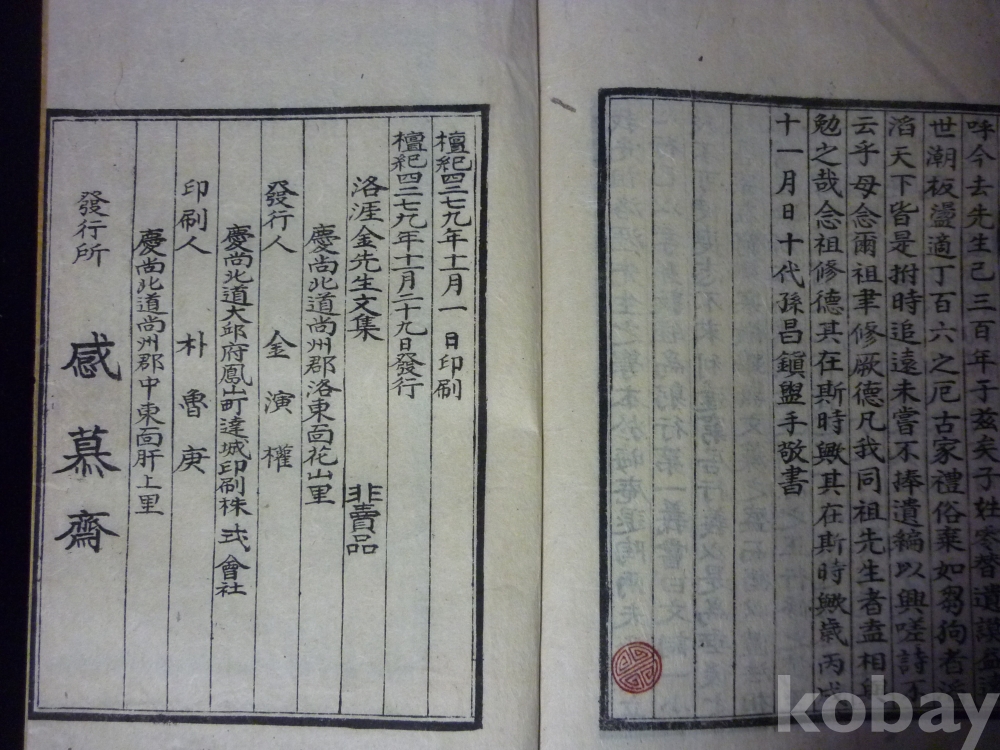 呼今去先生已三百年于玆矣子姓零替遺謨
世潮板盪適丁百六之厄古家禮俗棄如芻狗者
滔天下皆是拊時追遠未嘗不捧遺編以興嗟詩不
云乎毋念爾祖聿修厥德凡我同祖先生者盍相與
勉之哉念祖修德其在斯時歟其在斯時歟歲丙戌
十一月日十代孫昌鎭盥手敬書
檀紀四二七九年十一月一日印刷
檀紀四二七九年十一月二十九日發行
洛涯金先生文集 非賣品
慶尚北道尚州郡洛東面花山里
發行人 金演權
慶尚北道大邱府鳳山町達城印刷株式會社
印刷人 朴魯庚
慶尚北道尚州郡中東面肝上里
發行所 感慕齋
kobay